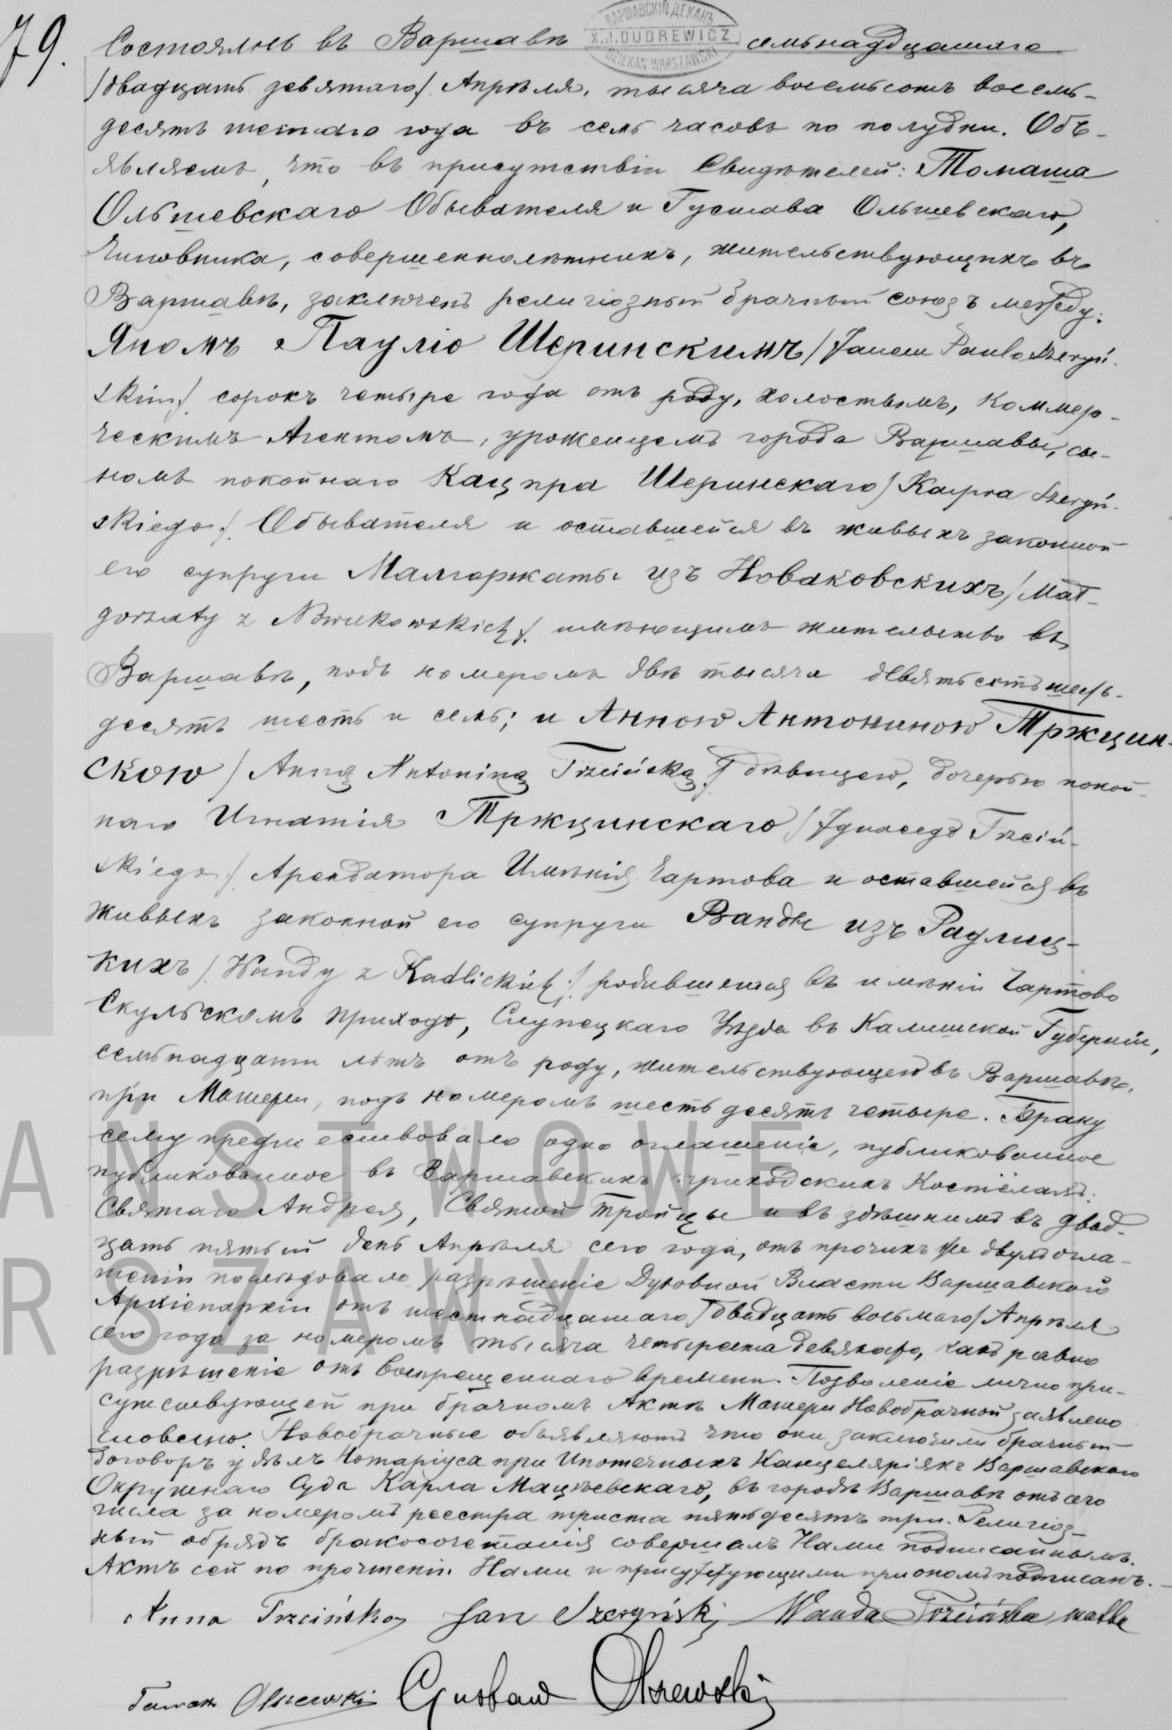 79.
ВАРШАВСКІЙ ДЕКАНЪ
X.J. DUDREWICZ
DZIEKAN WARSZAWSKI
Состоялось въ Варшавѣ семьнадцатаго
/двадцать девятаго/ Апрѣля, тысяча восемьсотъ восемь-
десятъ шестаго года въ семь часовъ по полудни. Объ-
являемъ, что въ присутствіи Свидѣтелей: Томаша
Ольшевскаго Обывателя и Густава Ольшевскаго,
Чиновника, совершеннолѣтнихъ, жительствующихъ въ
Варшавѣ, заключенъ религіозный брачный союзъ между:
Яномъ Пауліо Шеринскимъ /Janem Paulo Szeryń-
skim/ сорокъ четыре года отъ роду, холостымъ, Коммер-
ческимъ Агентомъ, урожемцемъ города Варшавы, сы-
номъ покойнаго Кацпра Шеринскаго /Kacpra Szeryń-
skiego/ Обывателя и оставшейся въ живыхъ законной
его супруги Малгоржаты изъ Новаковскихъ /Mał-
gorzaty z Nowakowskich/ имѣющимъ жительство въ
Варшавѣ, подъ номеромъ двѣ тысяча девятьсотъ шесть-
десятъ шесть и семь; и Анною Антониною Тржцин-
скою /Anną Antoniną Trzcińską/ дѣвицею, дочерью покой-
наго Игнатія Тржцинскаго /Ignacego Trzciń-
skiego/ Арендатора Имѣнія Чартова и оставшейся въ
живыхъ законной его супруги Ванды изъ Радлиц-
кихъ /Wandy z Radlickich/ родившеюся въ имѣніи Чартово
Скульскомъ приходѣ, Слупецкаго Уѣзда въ Калишской Губерніи,
семьнадцати лѣтъ отъ роду, жительствующею въ Варшавѣ,
при Матери, подъ номеромъ шестьдесятъ четыре. Браку
сему предшествовало одно оглашеніе, публикованное
публикованное въ Варшавскихъ приходскихъ Костелахъ:
Святаго Андрея, Святой Тройцы и въ здѣшнимъ въ двад-
цать пятый день Апрѣля сего года, отъ прочихъ же двухъ огла-
шеніи послѣдовало разрѣшеніе Духовной Власти Варшавской
Архіепархіи отъ шестнадцатаго /двадцать восьмаго/ Апрѣля
сего года за номеромъ тысяча четыреста девять, какъ равно
разрѣшеніе отъ воспрещеннаго времени. Позволеніе лично при-
сутствующей при брачномъ Актѣ Матери Новобрачной заявлено
словесно. Новобрачные объявляютъ что они заключили брачный
договоръ у Нотаріуса при Ипотечныхъ Канцеляріяхъ Варшавскаго
Окружнаго Суда Карла Мацѣевскаго, въ городѣ Варшавѣ отъ сего
числа за номеромъ реестра триста пятьдесятъ три. Религіоз-
ный обрядъ бракосочетанія совершалъ Нами подписаннымъ.
Актъ сей по прочтеніи Нами и присутствующими при ономъ подписанъ.
Anna Trzcińska Jan Szeryński Wanda Trzcińska matka
Tomasz Olszewski Gustaw Olszewski
AŃSTWOWE
RSZAWY